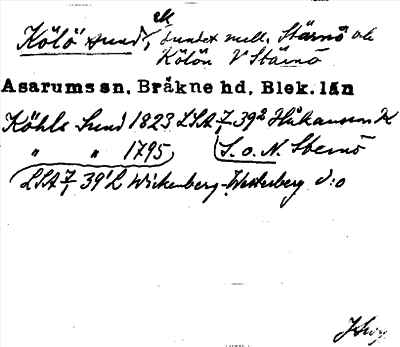 Kölö sund, sundet mell. Stärnö o
Kölön V Stärnö
Asarums sn, Bräkne hd, Blek. län
Köhls Sund 1823 LSA 7/1 39² Håkansson K
" " 1795 S. o. N. Sternö
LSA 7/1 39'L Wickenberg-Westerberg d:o